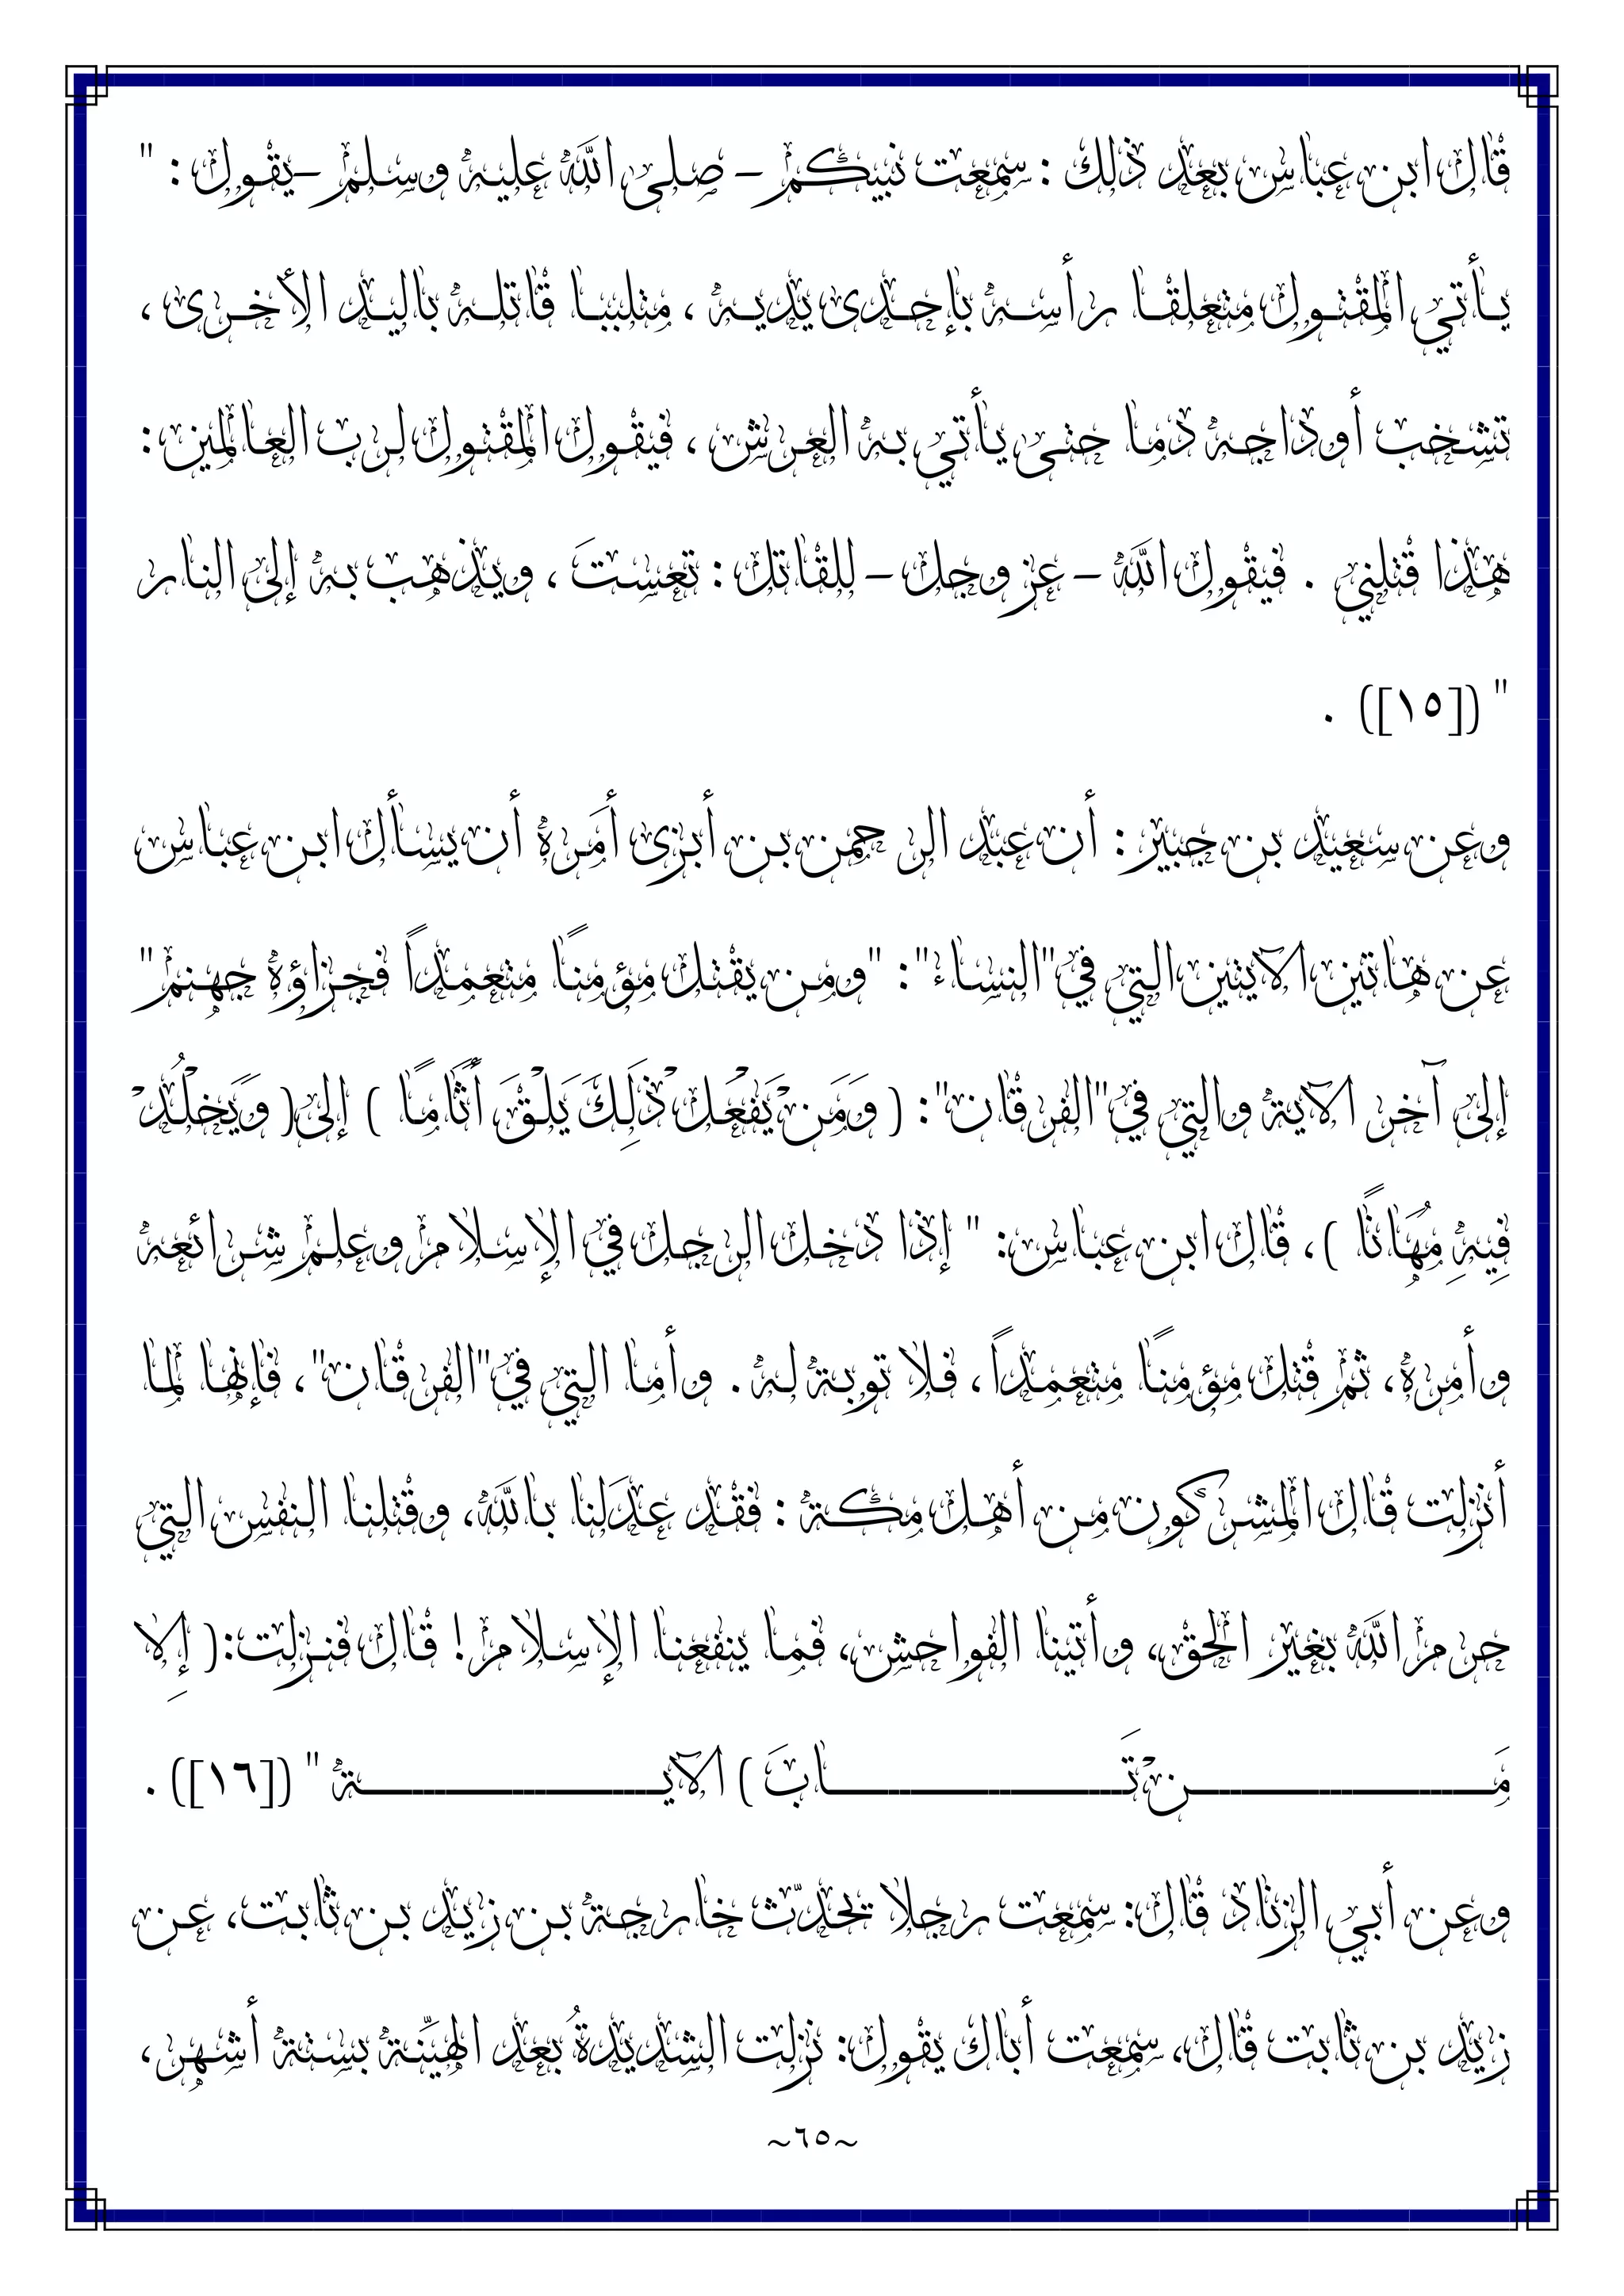 قال ابن عباس بعد ذلك : سمعت نبيكم – صلى الله عليه وسلم – يقول : "
يأتي المقتول متعلقا رأسه بإحدى يديه ، متلببا قاتله باليد الأخرى ،
تشخب أوداجه دما حتى يأتي به العرش ، فيقول المقتول لرب العالمين :
هذا قتلني . فيقول الله – عز وجل – للقاتل : تعستَ ، ويذهب به إلى النار
" ([١٥]) .
وعن سعيد بن جبير : أن عبد الرحمن بن أبزى أمَره أن يسأل ابن عباس
عن هاتين الآيتين التي في "النساء" : "ومن يقتل مؤمنًا متعمداً فجزاؤه جهنم"
إلى آخر الآية والتي في "الفرقان" : ( وَمَنْ يَفْعَلْ ذَلِكَ يَلْقَ أَثَامًا ) إلى ( وَيَخْلُدْ
فِيهِ مُهَانًا ) ، قال ابن عباس : " إذا دخل الرجل في الإسلام وعلم شرائعه
وأمره، ثم قتل مؤمنًا متعمداً، فلا توبة له . وأما التي في "الفرقان"، فإنها لما
أنزلت قال المشركون من أهل مكة : فقد عدَلنا بالله، وقتلنا النفس التي
حرم الله بغير الحق، وأتينا الفواحش، فما ينفعنا الإسلام! قال فنزلت: ( إِلا
مَنْ تَابَ ) الآية " ([١٦]) .
وعن أبي الزناد قال: سمعت رجلا يحدّث خارجة بن زيد بن ثابت، عن
زيد بن ثابت قال، سمعت أباك يقول: نزلت الشديدةُ بعد الهيِّنة بستة أشهر،
~٦٥~